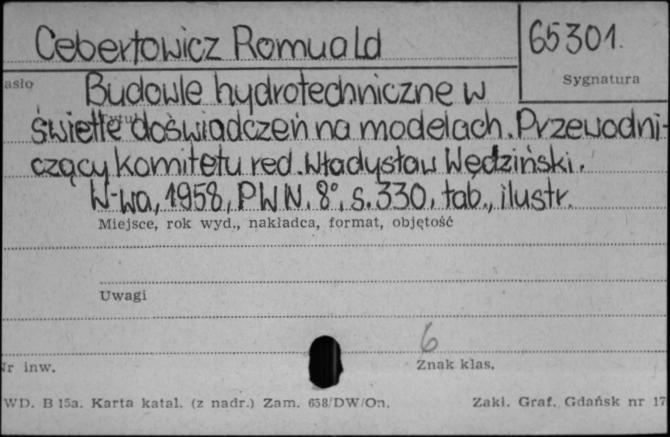 Cebertowicz Romuald
65301.
asło
Sygnatura
Budowle hydrotechniczne w
Tytuł
świetle doświadczeń na modelach. Przewodni-
czący komitetu red. Władysław Wędziński.
W-wa, 1958, PWN. 8°, s. 330, tab., ilustr.
Miejsce, rok wyd., nakładca, format, objętość
Uwagi
6
Nr inw.
Znak klas.
WD. B 15a. Karta katal. (z nadr.) Zam. 658/DW/On.
Zakł. Graf. Gdańsk nr 17